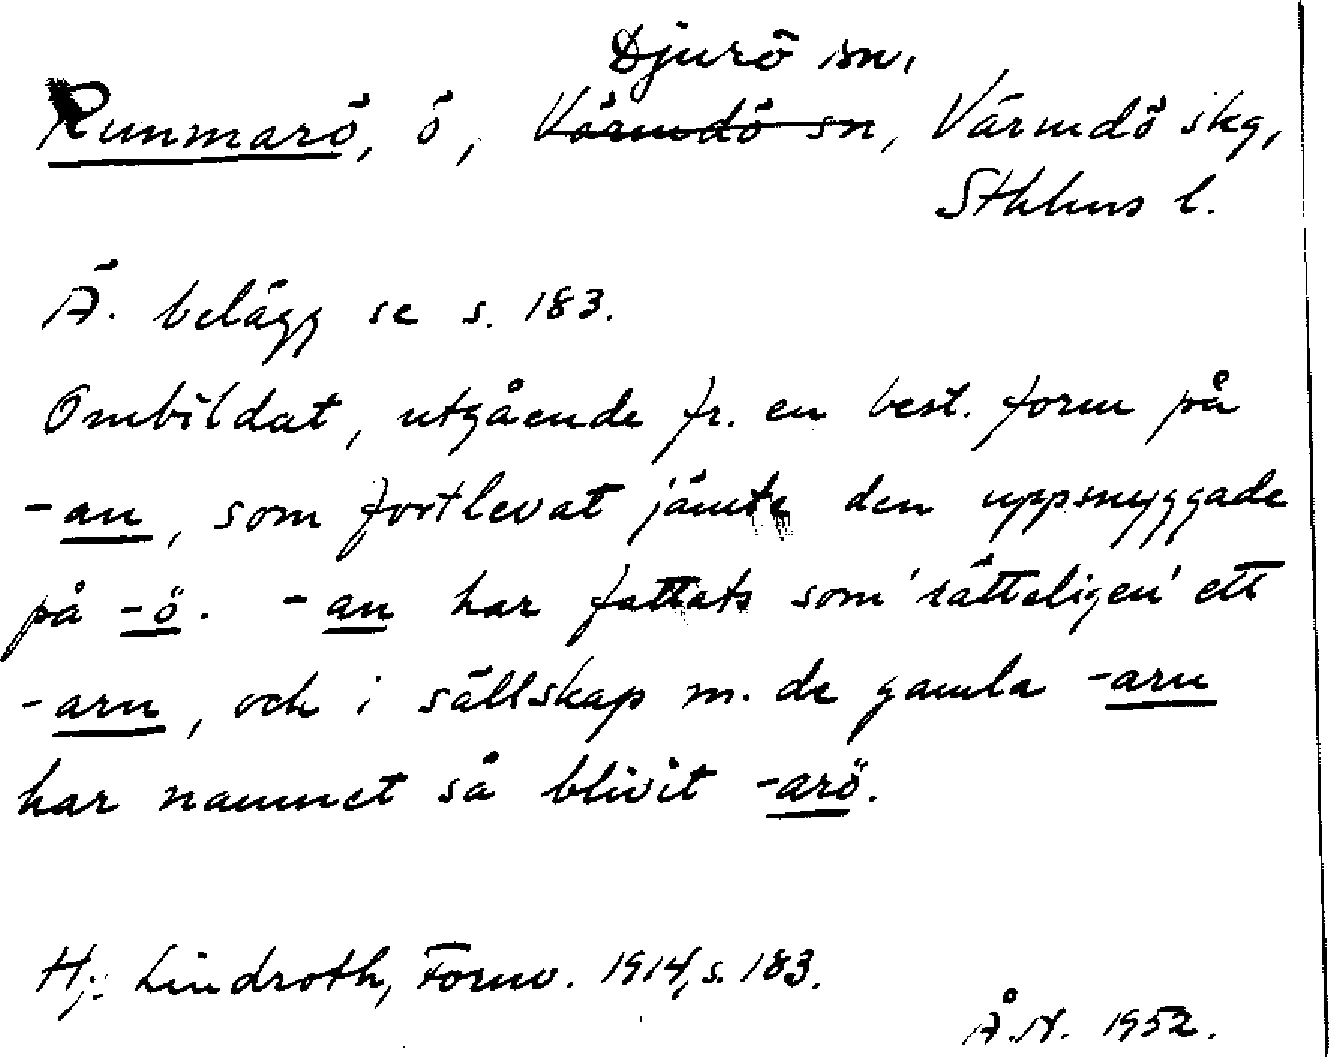 Djurö sn,
Runmarö, ö, Värmdö sn, Värmdö skg,
Sthlms l.
Ä. belägg se s. 183.
Ombildat, utgående fr. en best. form på
-an, som fortlevat jämte den uppsnyggade
på -ö. -an har fattats som 'rätteligen' ett
-arn, och i sällskap m. de gamla -arn
har namnet så blivit -arö.
Hj. Lindroth, Fornv. 1914, s. 183.
Å.N. 1952.